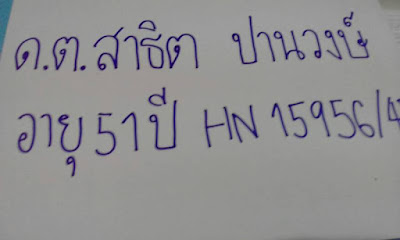 ด.ต.สาธิต ปานวงษ์
อายุ 51 ปี HN 15956/4